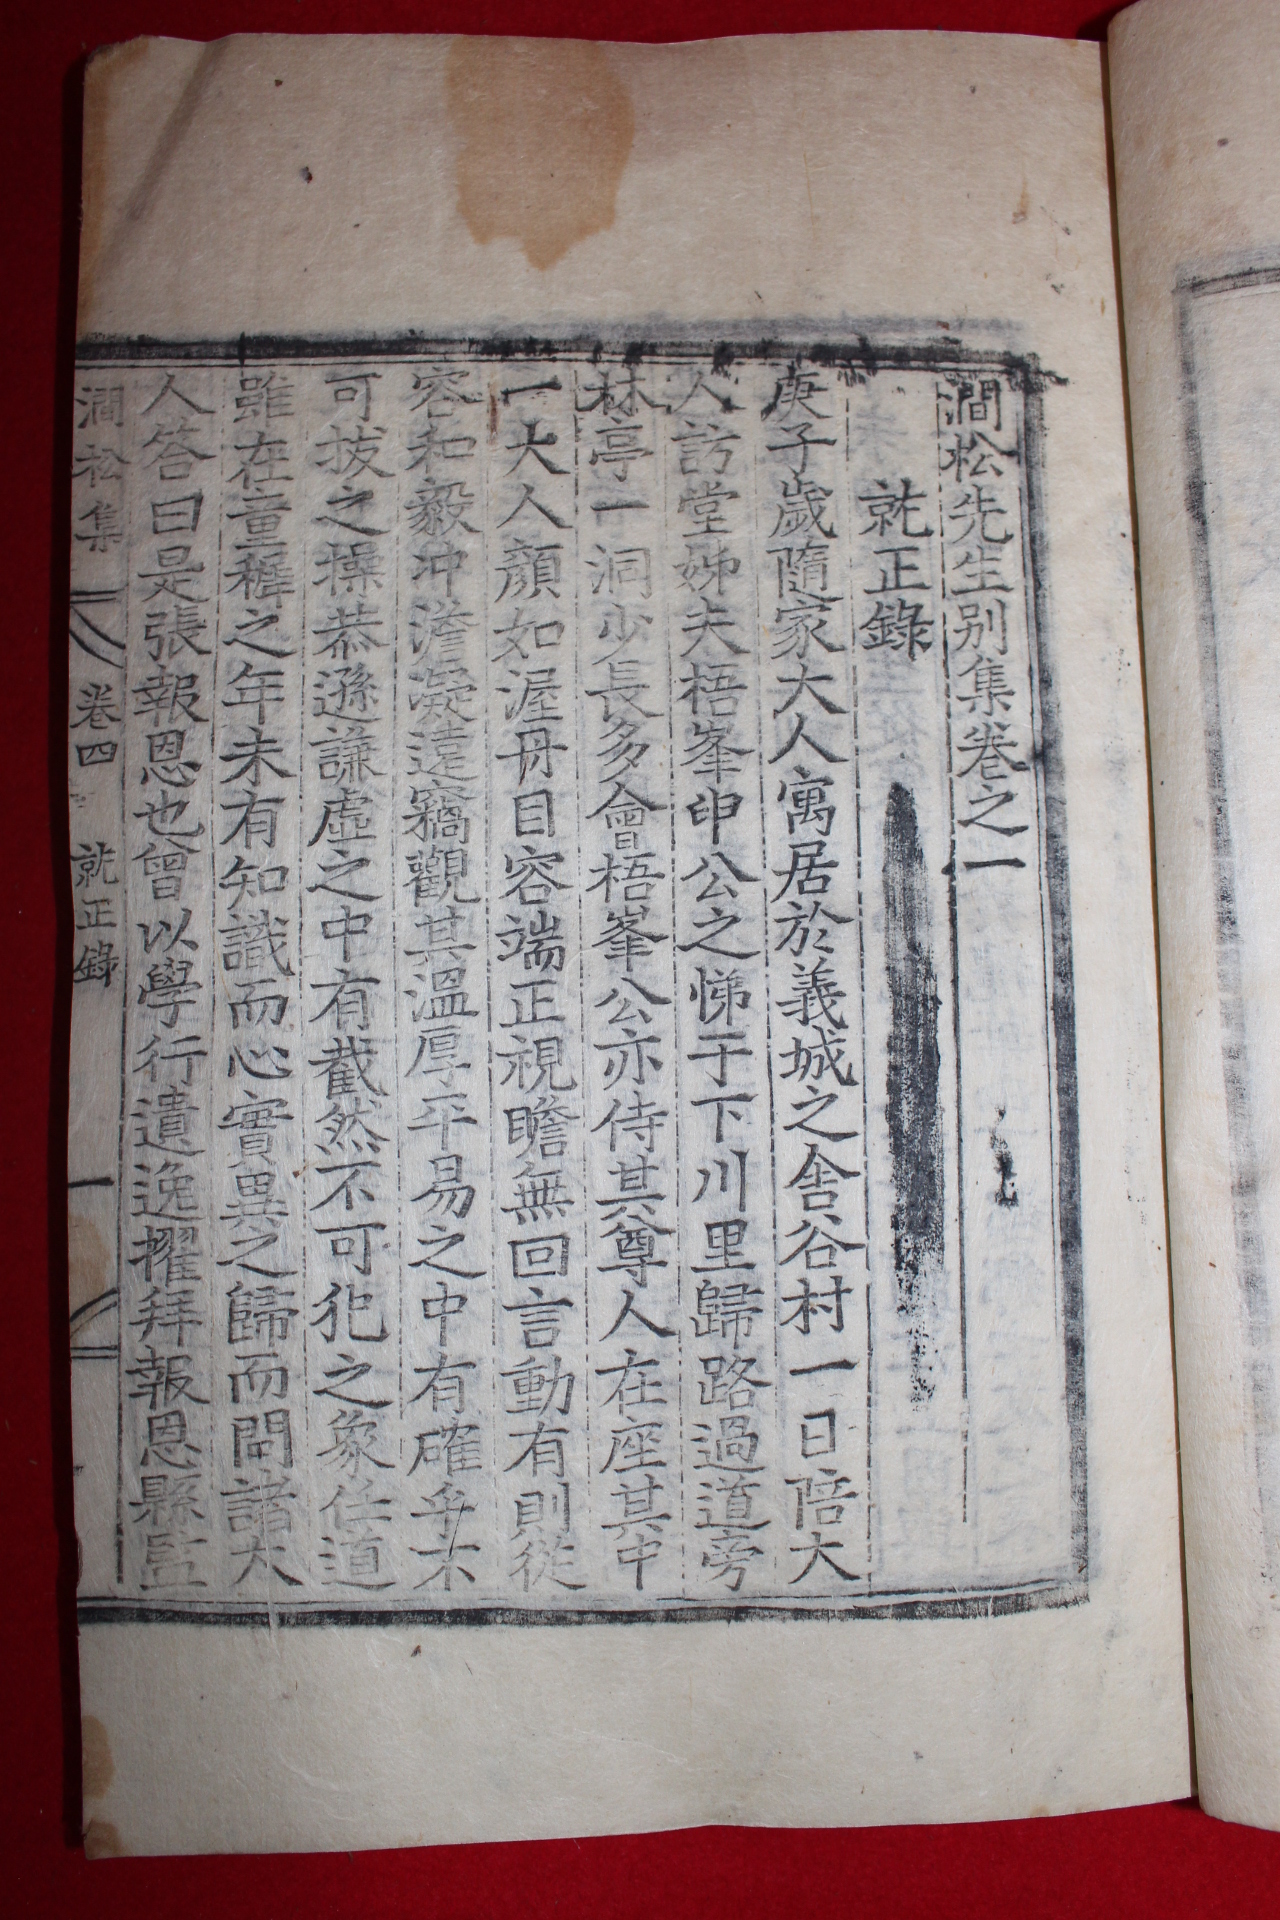 澗松先生別集卷之一
就正錄
庚子歲隨家大人寓居於義城之舎谷村一日陪大
人訪堂姊夫梧峯申公之悌于下川里歸路過道旁
林亭一洞少長多會梧峯公亦侍其尊人在座其中
一大人顔如渥丹目容端正視瞻無回言動有則從
容和毅冲澹凝遠竊觀其溫厚平易之中有確乎不
可拔之操恭遜謙虛之中有截然不可犯之象任道
雖在童穉之年未有知識而心實異之歸而問諸大
人答曰是張報恩也曾以學行遺逸擢拜報恩縣監
澗松集 卷四 就正錄 一